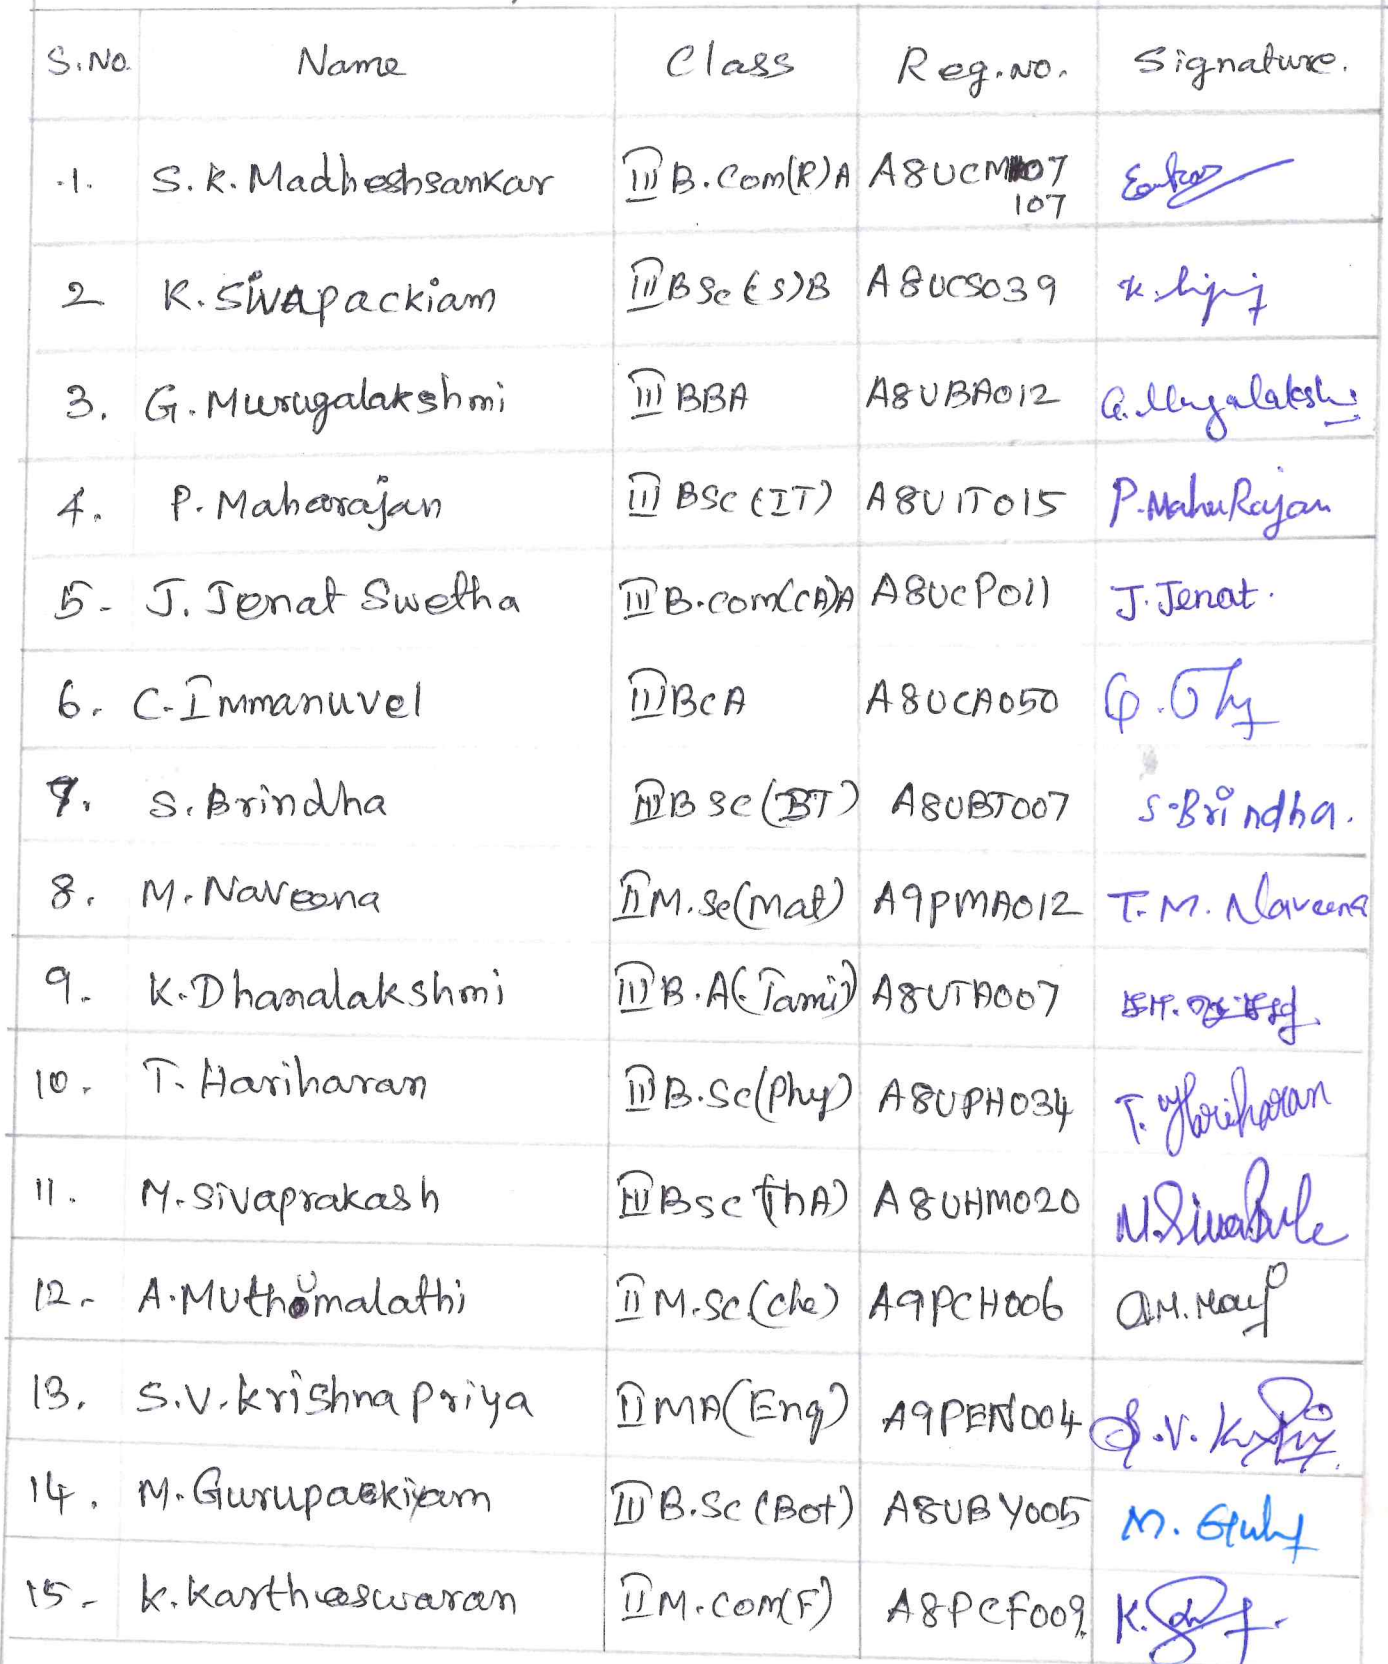 S.No. Name Class Reg.No. Signature.
1. S.K. Madheshsankar III B.Com(R)A A8UCM107
107
2 K. Sivapackiam III BSc (S)B A8UCS039
3. G. Murugalakshmi III BBA A8UBA012 G. Murugalakshmi
4. P. Maharajan III BSc (IT) A8UIT015 P. MahaRajan
5- J. Jenat Swetha III B.com(CA)A A8UCP011 J. Jenat.
6. C. Immanuvel III BCA A8UCA050
7. S. Brindha III BSc (BT) A8UBT007 S. Brindha.
8. M. Naveena II M.Sc(mat) A9PMA012 T. M. Naveena
9. K. Dhanalakshmi III B.A(Tamil) A8UTA007
10. T. Hariharan III B.Sc(Phy) A8UPH034 T. Hariharan
11. M. Sivaprakash III BSc (HA) A8UHM020
12. A. Muthumalathi II M.Sc.(che) A9PCH006
13. S.V. Krishna Priya II MA(Eng) A9PEN004 S.V.
14. M. Gurupackiyam III B.Sc (Bot) A8UBY005 M.
15- K. Kartheeswaran II M.Com(F) A8PCF009 K.